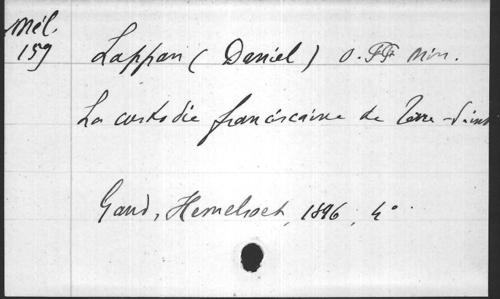 Mél.
159
Lappan (Daniel) O. FF. Min.
La custodie franciscaine de Terre-Saint
Gand, Hemelsoet, 1896, 4°